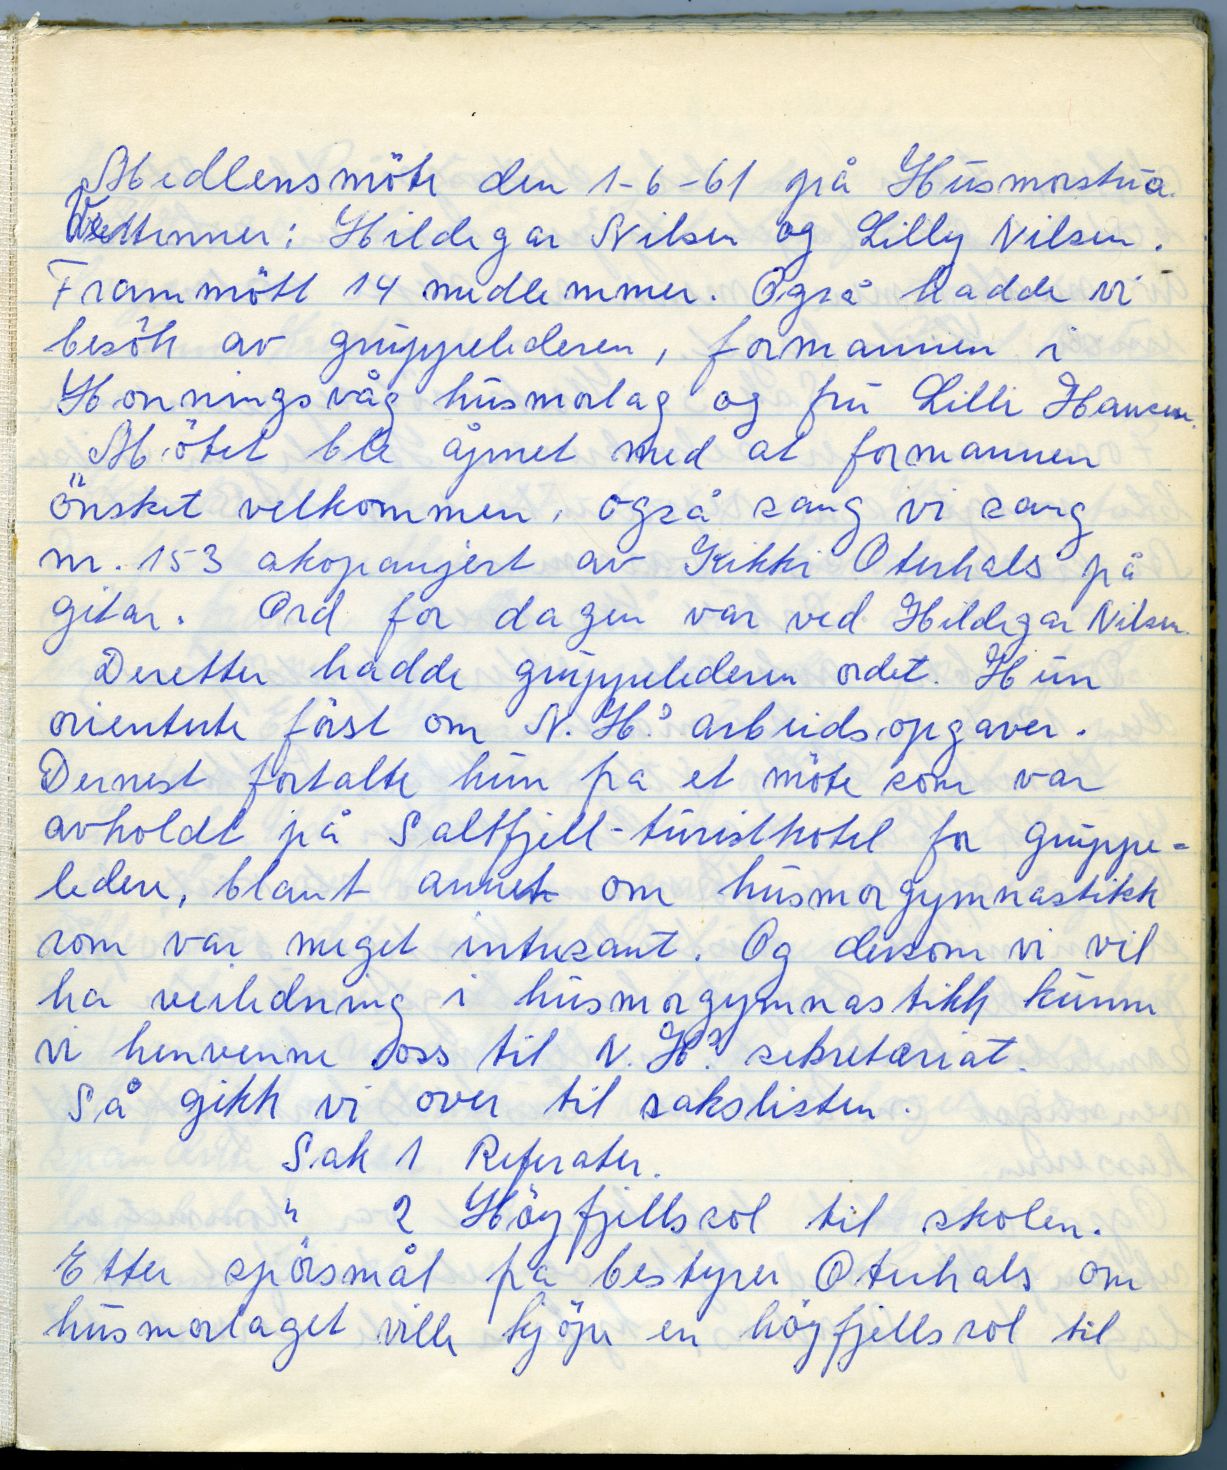 Medlensmöte den 1-6-61 på Husmorstua.
Vertinner: Hildegar Nilsen og Lilly Nilsen.
Frammött 14 medlemmer. Også hadde vi
besök av gruppelederen, formannen i
Honningsvåg husmorlag og fru Lilli Hansen.
Mötet ble åpnet med at formannen
önsket velkommen, også sang vi sang
nr. 153 akopanjert av Kikki Oterhals på
gitar. Ord for dagen var ved Hildegar Nilsen.
Deretter hadde gruppelederen ordet. Hun
orienterte först om N.H? arbeidsopgaver.
Dernest fortalte hun fra et möte som var
avholdt på Saltfjell-turisthotel for gruppe-
ledere, blant annet om husmorgymnastikk
som var meget intresant. Og dersom vi vil
ha veiledning i husmorgymnastikk kunne
vi henvenne oss til N.H? sekretæriat.
Så gikk vi over til sakslisten.
Sak 1 Referater.
" 2 Höyfjellssol til skolen.
Etter spörsmål fra bestyrer Oterhals om
husmorlaget ville kjöpe en höyfjellssol til